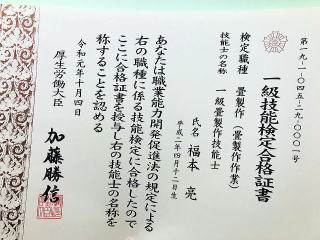 第一九-一-〇四五-二九-〇〇〇一号
一級技能検定合格証書
検定職種　畳製作（畳製作作業）
技能士の名称　一級畳製作技能士
氏名　福本　亮
平成二年四月十二日生
あなたは職業能力開発促進法の規定による
右の職種に係る技能検定に合格したので
ここに合格証書を授与し右の技能士の名称を
称することを認める
令和元年十月四日
厚生労働大臣　加藤勝信